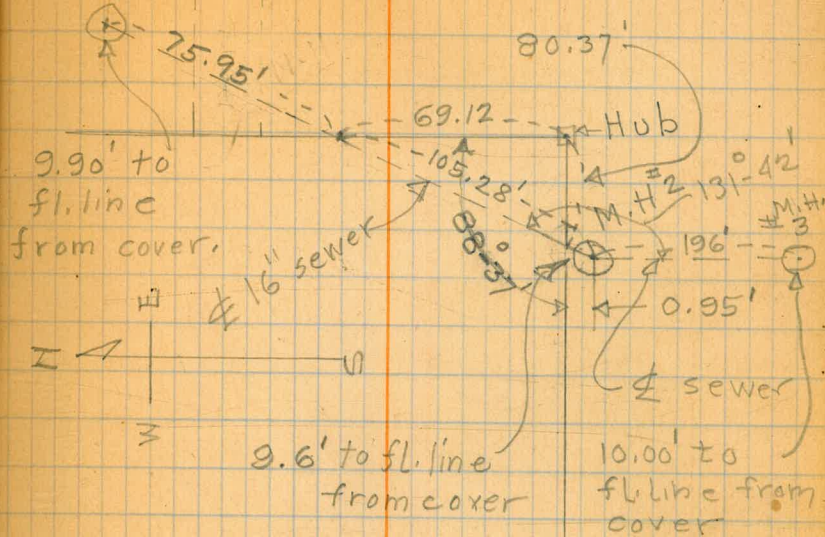 75.95'
80.37'
69.12
Hub
9.90' to
fl. line
from cover.
105.28'
M.H. #2
131°-42'
M.H.
#3
196'
88°-37'
℄ 16" sewer
0.95'
E
N
S
W
℄ sewer
9.6' to fl. line
from cover
10.00' to
fl. line from
cover